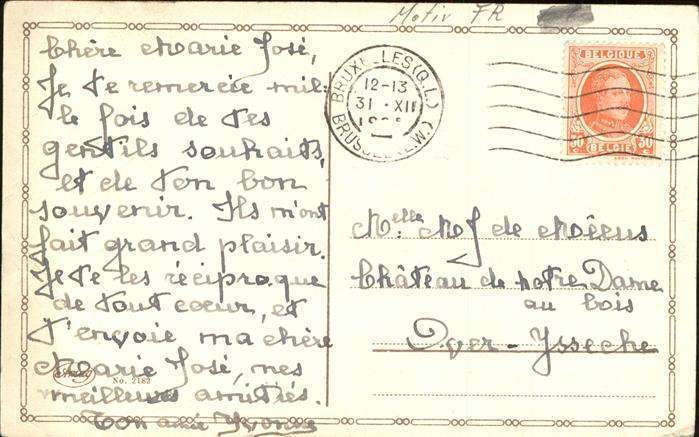 Motiv FR
Chère Marie José,
Je te remercie mil-
le fois de tes
gentils souhaits,
et de ton bon
souvenir. Ils m'ont
fait grand plaisir.
Je te les réciproque
de tout cœur, et
t'envoie ma chère
Marie José, mes
meilleurs amitiés.
Ton amie Yvonne
No. 2182
BRUXELLES (Q.L.)
12-13
31 XII
BRUSSEL (L.W.)
BELGIQUE
30 30
BELGIË
Melle MJ de Moëeus
Château de notre Dame
au bois
Over-Yssche